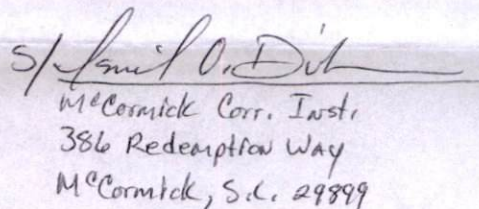 S/ O.
McCormick Corr. Inst.
386 Redemption Way
McCormick, S.C. 29899